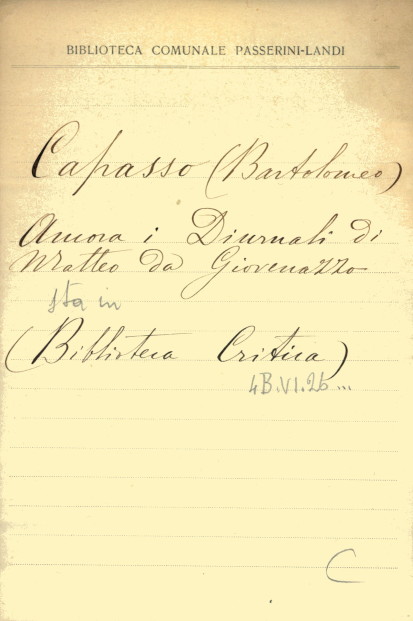 BIBLIOTECA COMUNALE PASSERINI-LANDI
Capasso (Bartolomeo)
Ancora i Diurnali di
Matteo da Giovenazzo
sta in
(Biblioteca Critica)
4B.VI.26...
C